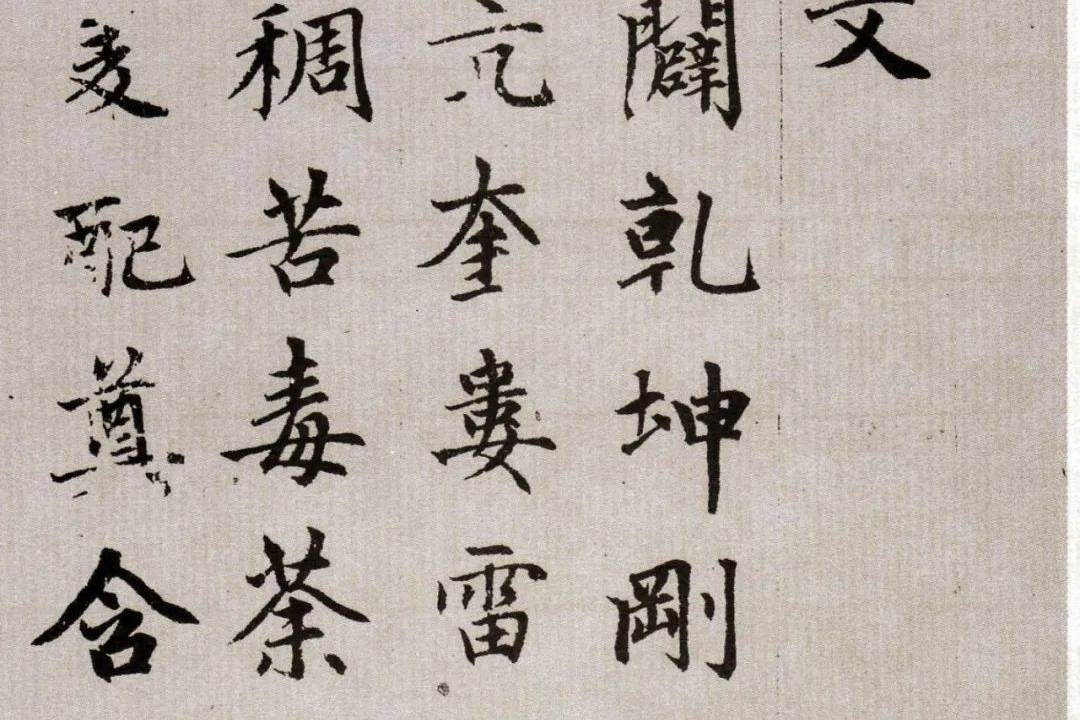 文
闢乾坤剛
亢奎婁雷
稠苦毒荼
配奠含